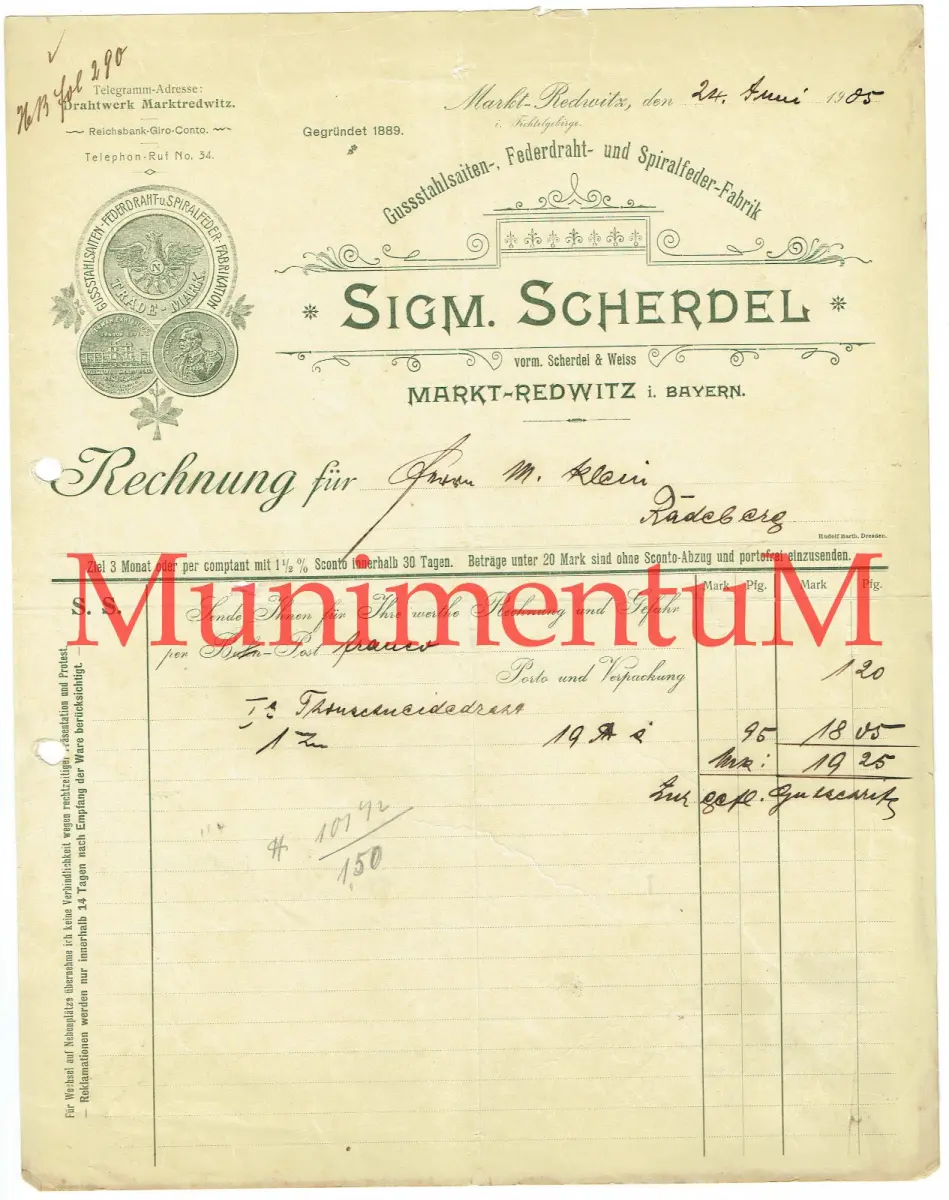 HB fol 290
Telegramm-Adresse:
Drahtwerk Marktredwitz.
Reichsbank-Giro-Conto.
Telephon-Ruf No. 34.
Gegründet 1889.
Markt-Redwitz, den 24. Juni 1905
i. Fichtelgebirge.
Gussstahlsaiten-, Federdraht- und Spiralfeder-Fabrik
GUSSSTAHLSAITEN-FEDERDRAHT u. SPIRALFEDER-FABRIKATION
N
TRADE-MARK.
SIGM. SCHERDEL
vorm. Scherdel & Weiss
MARKT-REDWITZ i. BAYERN.
Rechnung für Herrn M. Klein
Radeberg
Rudolf Barth, Dresden.
Ziel 3 Monat oder per comptant mit 1 1/2 % Sconto innerhalb 30 Tagen. Beträge unter 20 Mark sind ohne Sconto-Abzug und portofrei einzusenden.
MunimentuM
Mark Pfg. Mark Pfg.
S. S.
Sende Ihnen für Ihre werthe Rechnung und Gefahr
per Bahn-Post franco
Porto und Verpackung 1 20
Ia Thonschneidedraht
19 95 18 05
Mk: 19 25
Zur gefl. Gutschrift
150
Für Wechsel auf Nebenplätze übernehme ich keine Verbindlichkeit wegen rechtzeitiger Präsentation und Protest.
— Reklamationen werden nur innerhalb 14 Tagen nach Empfang der Ware berücksichtigt. —